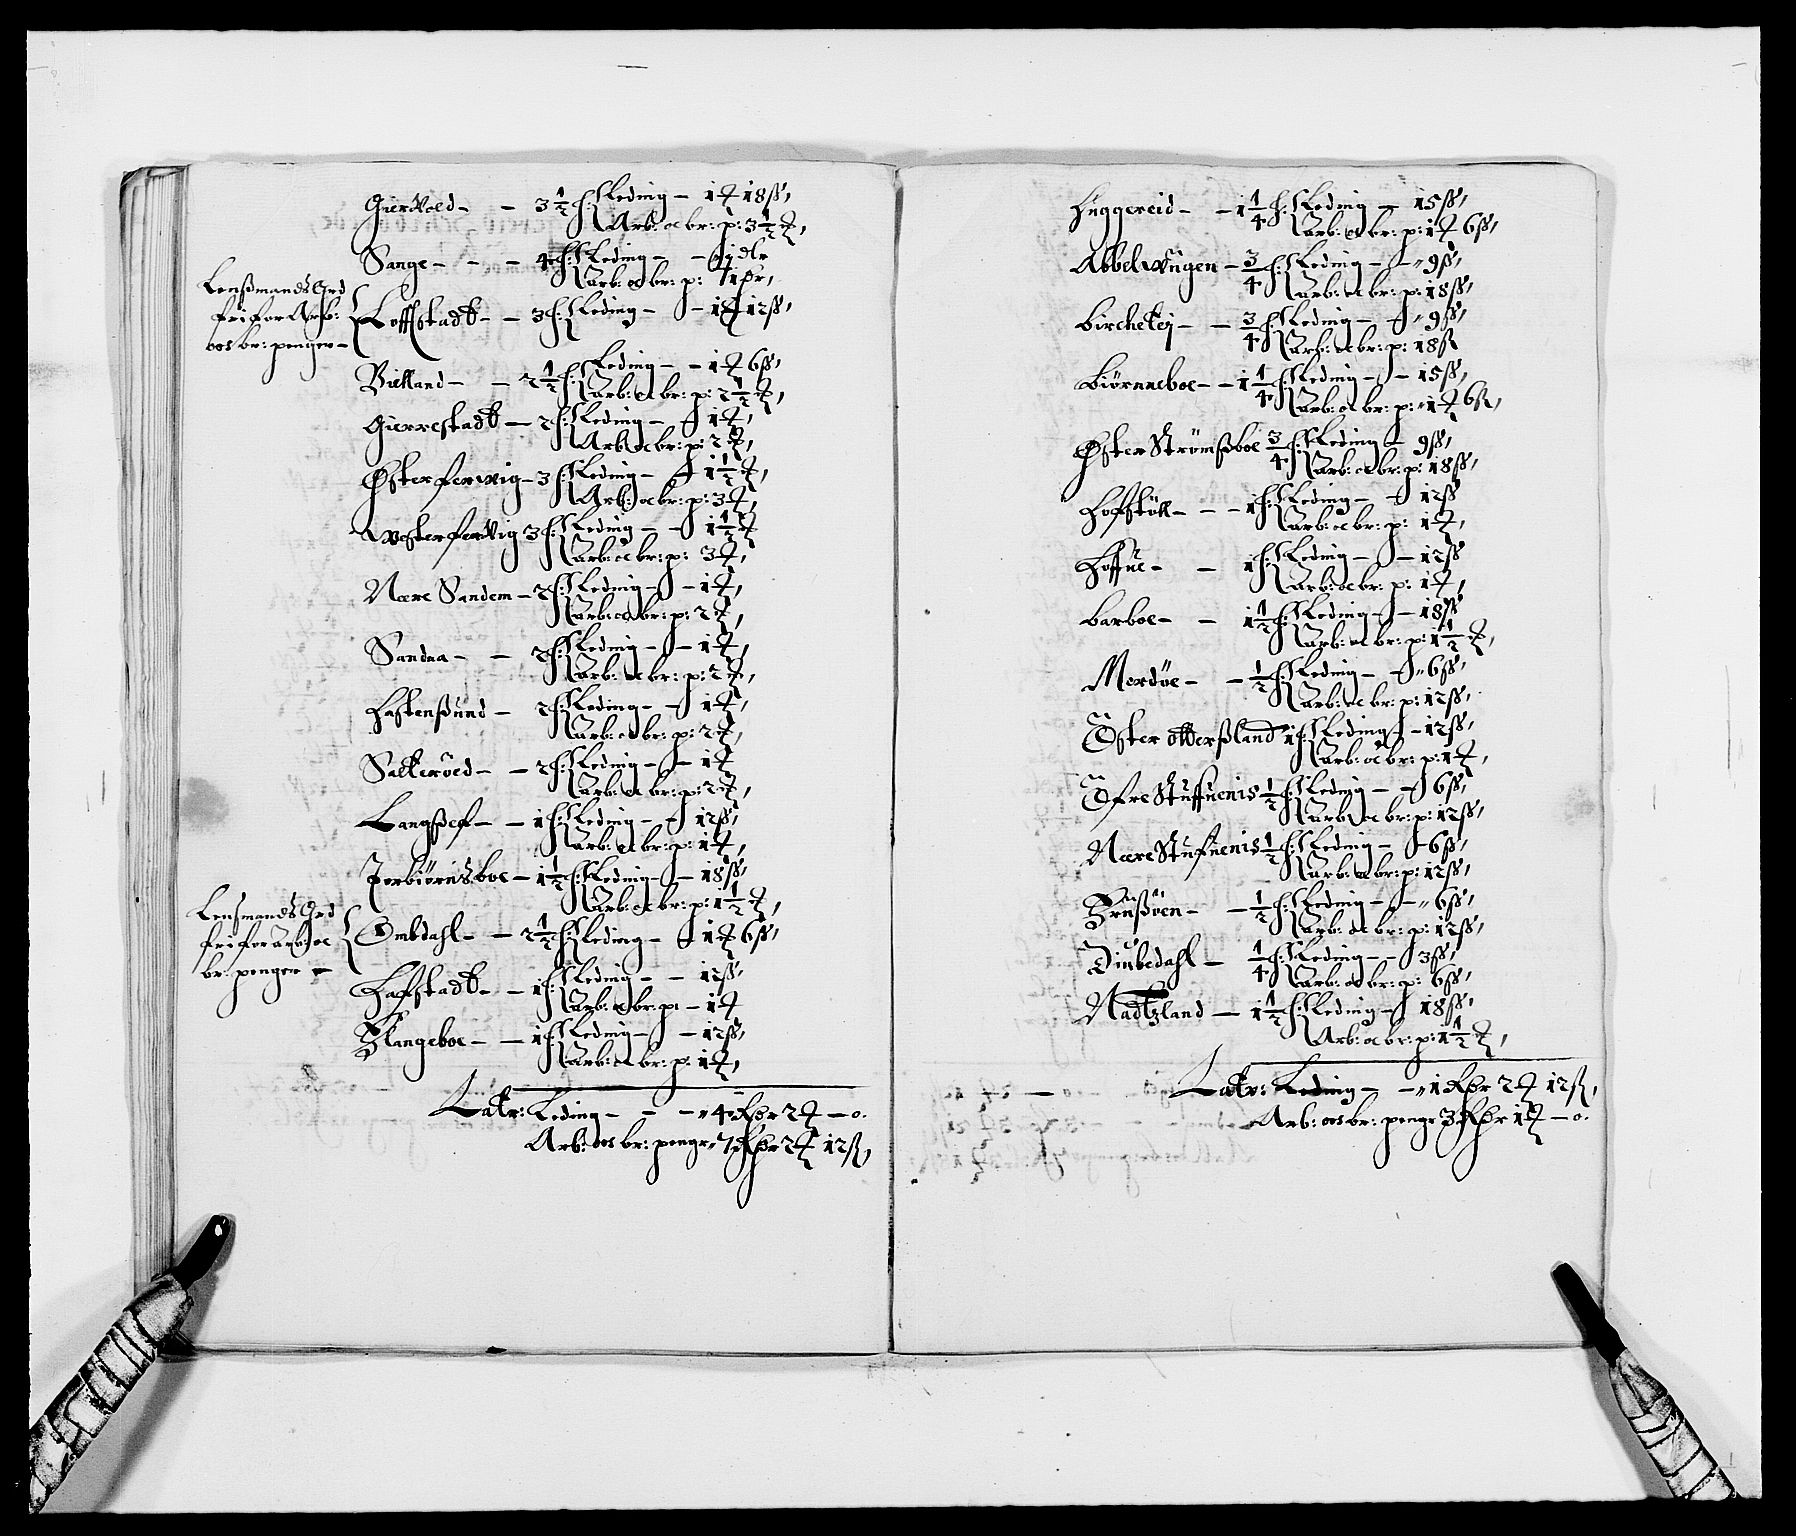 GierWoed - - 3 1/2 h: Leding - 1 ₰ 18 ß,
Arb: oc br: p: 3 1/2 ₰,
Sange - - - 4 h: Leding - - 1 dlr
arb: oc br: p: 1 pr,
Lenßmands Grd
fri for Arb:
oes br: penger -
Loffstadt - - 3 h: Leding - - 1 ₰ 12 ß,
Bielland - - 2 1/2 h: Leding - - 1 ₰ 6 ß,
arb: oc br: p: 2 1/2 ₰,
Gierrestadt - 2 h: Leding - - 1 ₰,
Arb oc br: p: 2 ₰,
Østerferwig - 3 h: Leding - - 1 1/2 ₰,
Arb: oc br: p: 3 ₰,
Westerferwig 3 h: Leding - - 1 1/2 ₰
arb: oc br: p: 3 ₰,
Nære Sandem - 2 h: Leding - - 1 ₰,
arb: oc br: p: 2 ₰,
Sandna - - 2 h: Leding - - 1 ₰,
arb: oc br: p: 2 ₰,
Hastenßund - 2 h: Leding - - 1 ₰,
arb: oc br: p: 2 ₰,
Salteröed - - 2 h: Leding - - 1 ₰
arb: oc br: p: 2 ₰,
Langßef - - 1 h: Leding - - 12 ß,
arb: oc br: p: 1 ₰,
Torbiörnsboe - 1 1/2 h: Leding - - 18 ß,
arb: oc br: p: 1 1/2 ₰,
Lensmands Grd
fri for Arb: oc
br: penger -
Ombdahl - - 2 1/2 h: Leding - - 1 ₰ 6 ß,
Haffstadt - - 1 h: Leding - - 12 ß,
arb: oc br: p: - 1 ₰
Klangeboe - - 1 h: Leding - - 12 ß,
arb: oc br: p: 1 ₰,
Latr: Leding - - - 4 Rdr 2 ₰ - 0.
Arb: oes br: pengr 7 Rdr 2 ₰ 12 ß,
Huggereid - - 1 1/4 h: Leding - 15 ß,
arb: oc br: p: 1 ₰ 6 ß,
Abbelwugen - 3/4 h: Leding - - 9 ß,
arb: oc br: p: 18 ß,
Birchelej - - 3/4 h: Leding - - 9 ß,
arb: oc br: p: 18 ß
Biørnneboe - - 1 1/4 h: Leding - - 15 ß,
arb: oc br: p: 1 ₰ 6 ß,
Øster Strømßboe 3/4 h: Leding - 9 ß,
arb: oc br: p: 18 ß,
Hoffstöll - - - 1 h: Leding - - 12 ß
arb: oc br: p: 1 ₰,
Hoffue - - 1 h: Leding - - 12 ß
arb: oc br: p: 1 ₰,
Barboe - - 1 1/2 h: Leding - - 18 ß
arb: oc br: p: 1 1/2 ₰,
Merdöe - - 1/2 h: Leding - - 6 ß,
arb: oc br: p: 12 ß,
Öster otterßland 1 h: Leding - - 12 ß,
arb: oc br: p: 1 ₰,
Öfre Stuffuenis 1/2 h: Leding - - 6 ß,
arb: oc br: p: 12 ß,
Nære Stufuenis 1/2 h: Leding - - 6 ß,
arb: oc br: p: 12 ß,
Krußöen - - 1/2 h: Leding - - 6 ß,
arb: oc br: p: 12 ß,
Diubedahl - 1/4 h: Leding - - 3 ß,
arb: oc br: p: 6 ß,
Nadtzland - 1 1/2 h: Leding - - 18 ß,
Arb: oc br: p: 1 1/2 ₰,
Latr: Leding - - 1 Rdr 2 ₰ 12 ß,
Arb: oes br: pengr 3 Rdr 1 ₰ - 0.